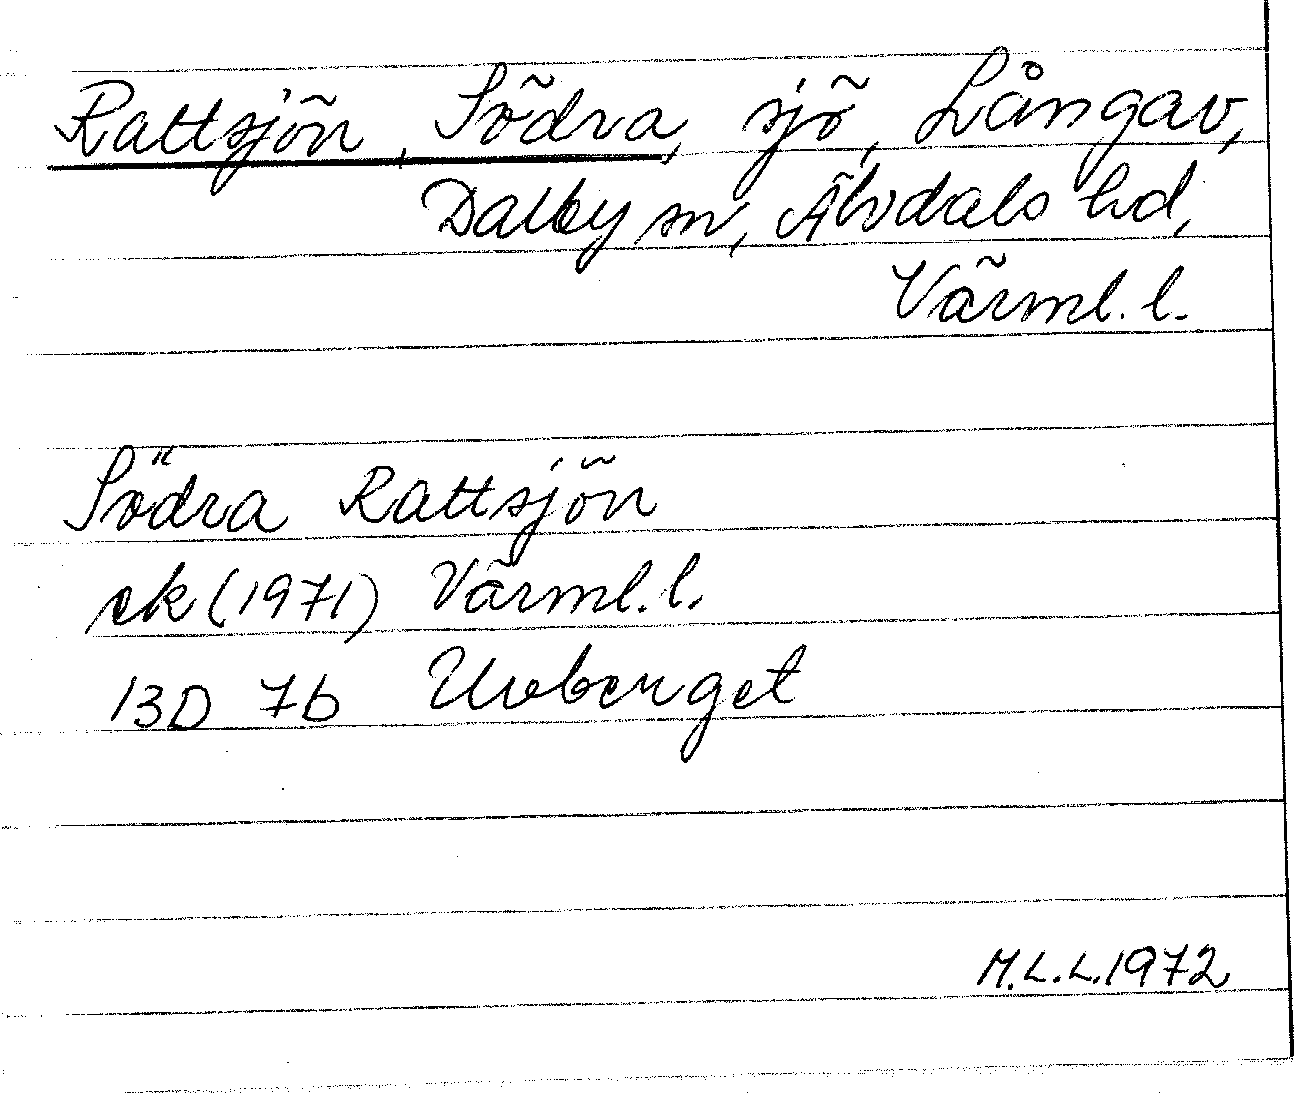 Rattsjön, Södra, sjö, Långav,
Dalby sn, Älvdals hd,
Värml. l.
Södra Rattsjön
ek (1971) Värml. l.
13D 7b Uvberget
M.L.L. 1972